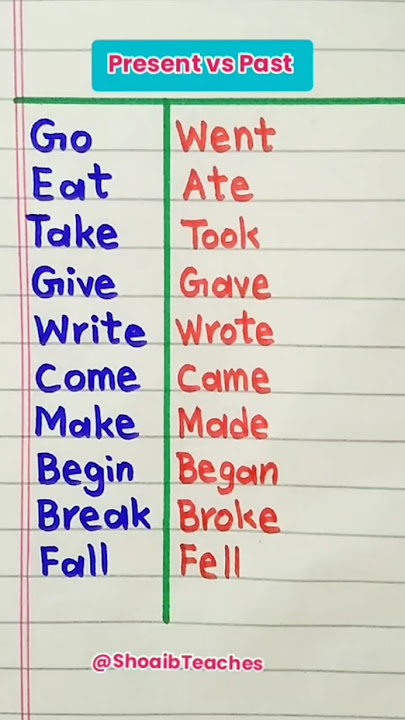 Present vs Past
Go Went
Eat Ate
Take Took
Give Gave
Write Wrote
Come Came
Make Made
Begin Began
Break Broke
Fall Fell
@ShoaibTeaches